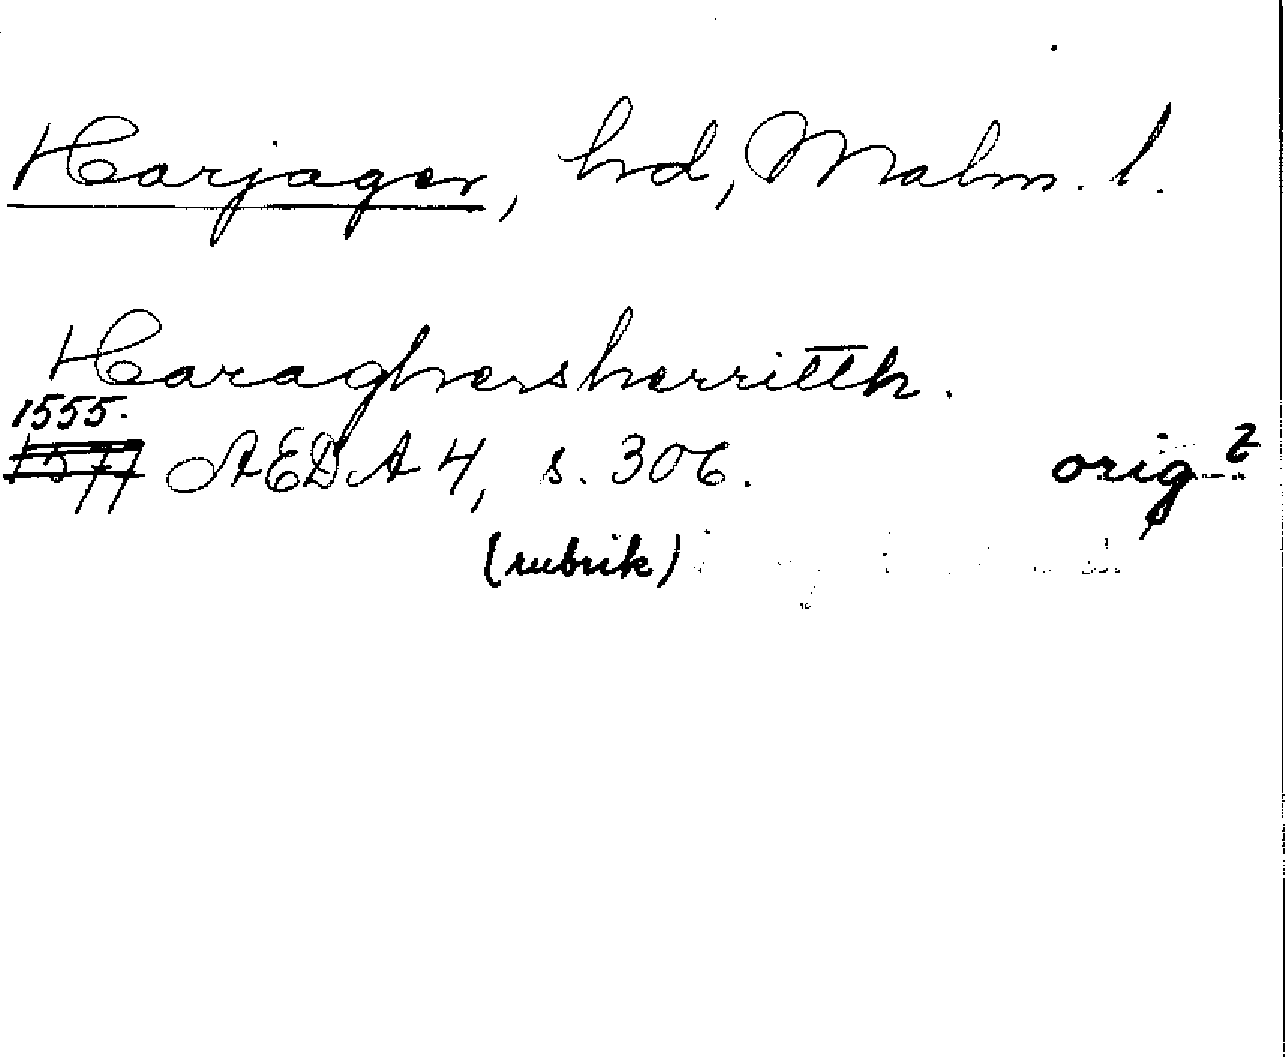 Harjager, hd, Malm. l.
Haraghersherritth.
1555.
AEDA 4, s. 306. orig 2
(rubrik)